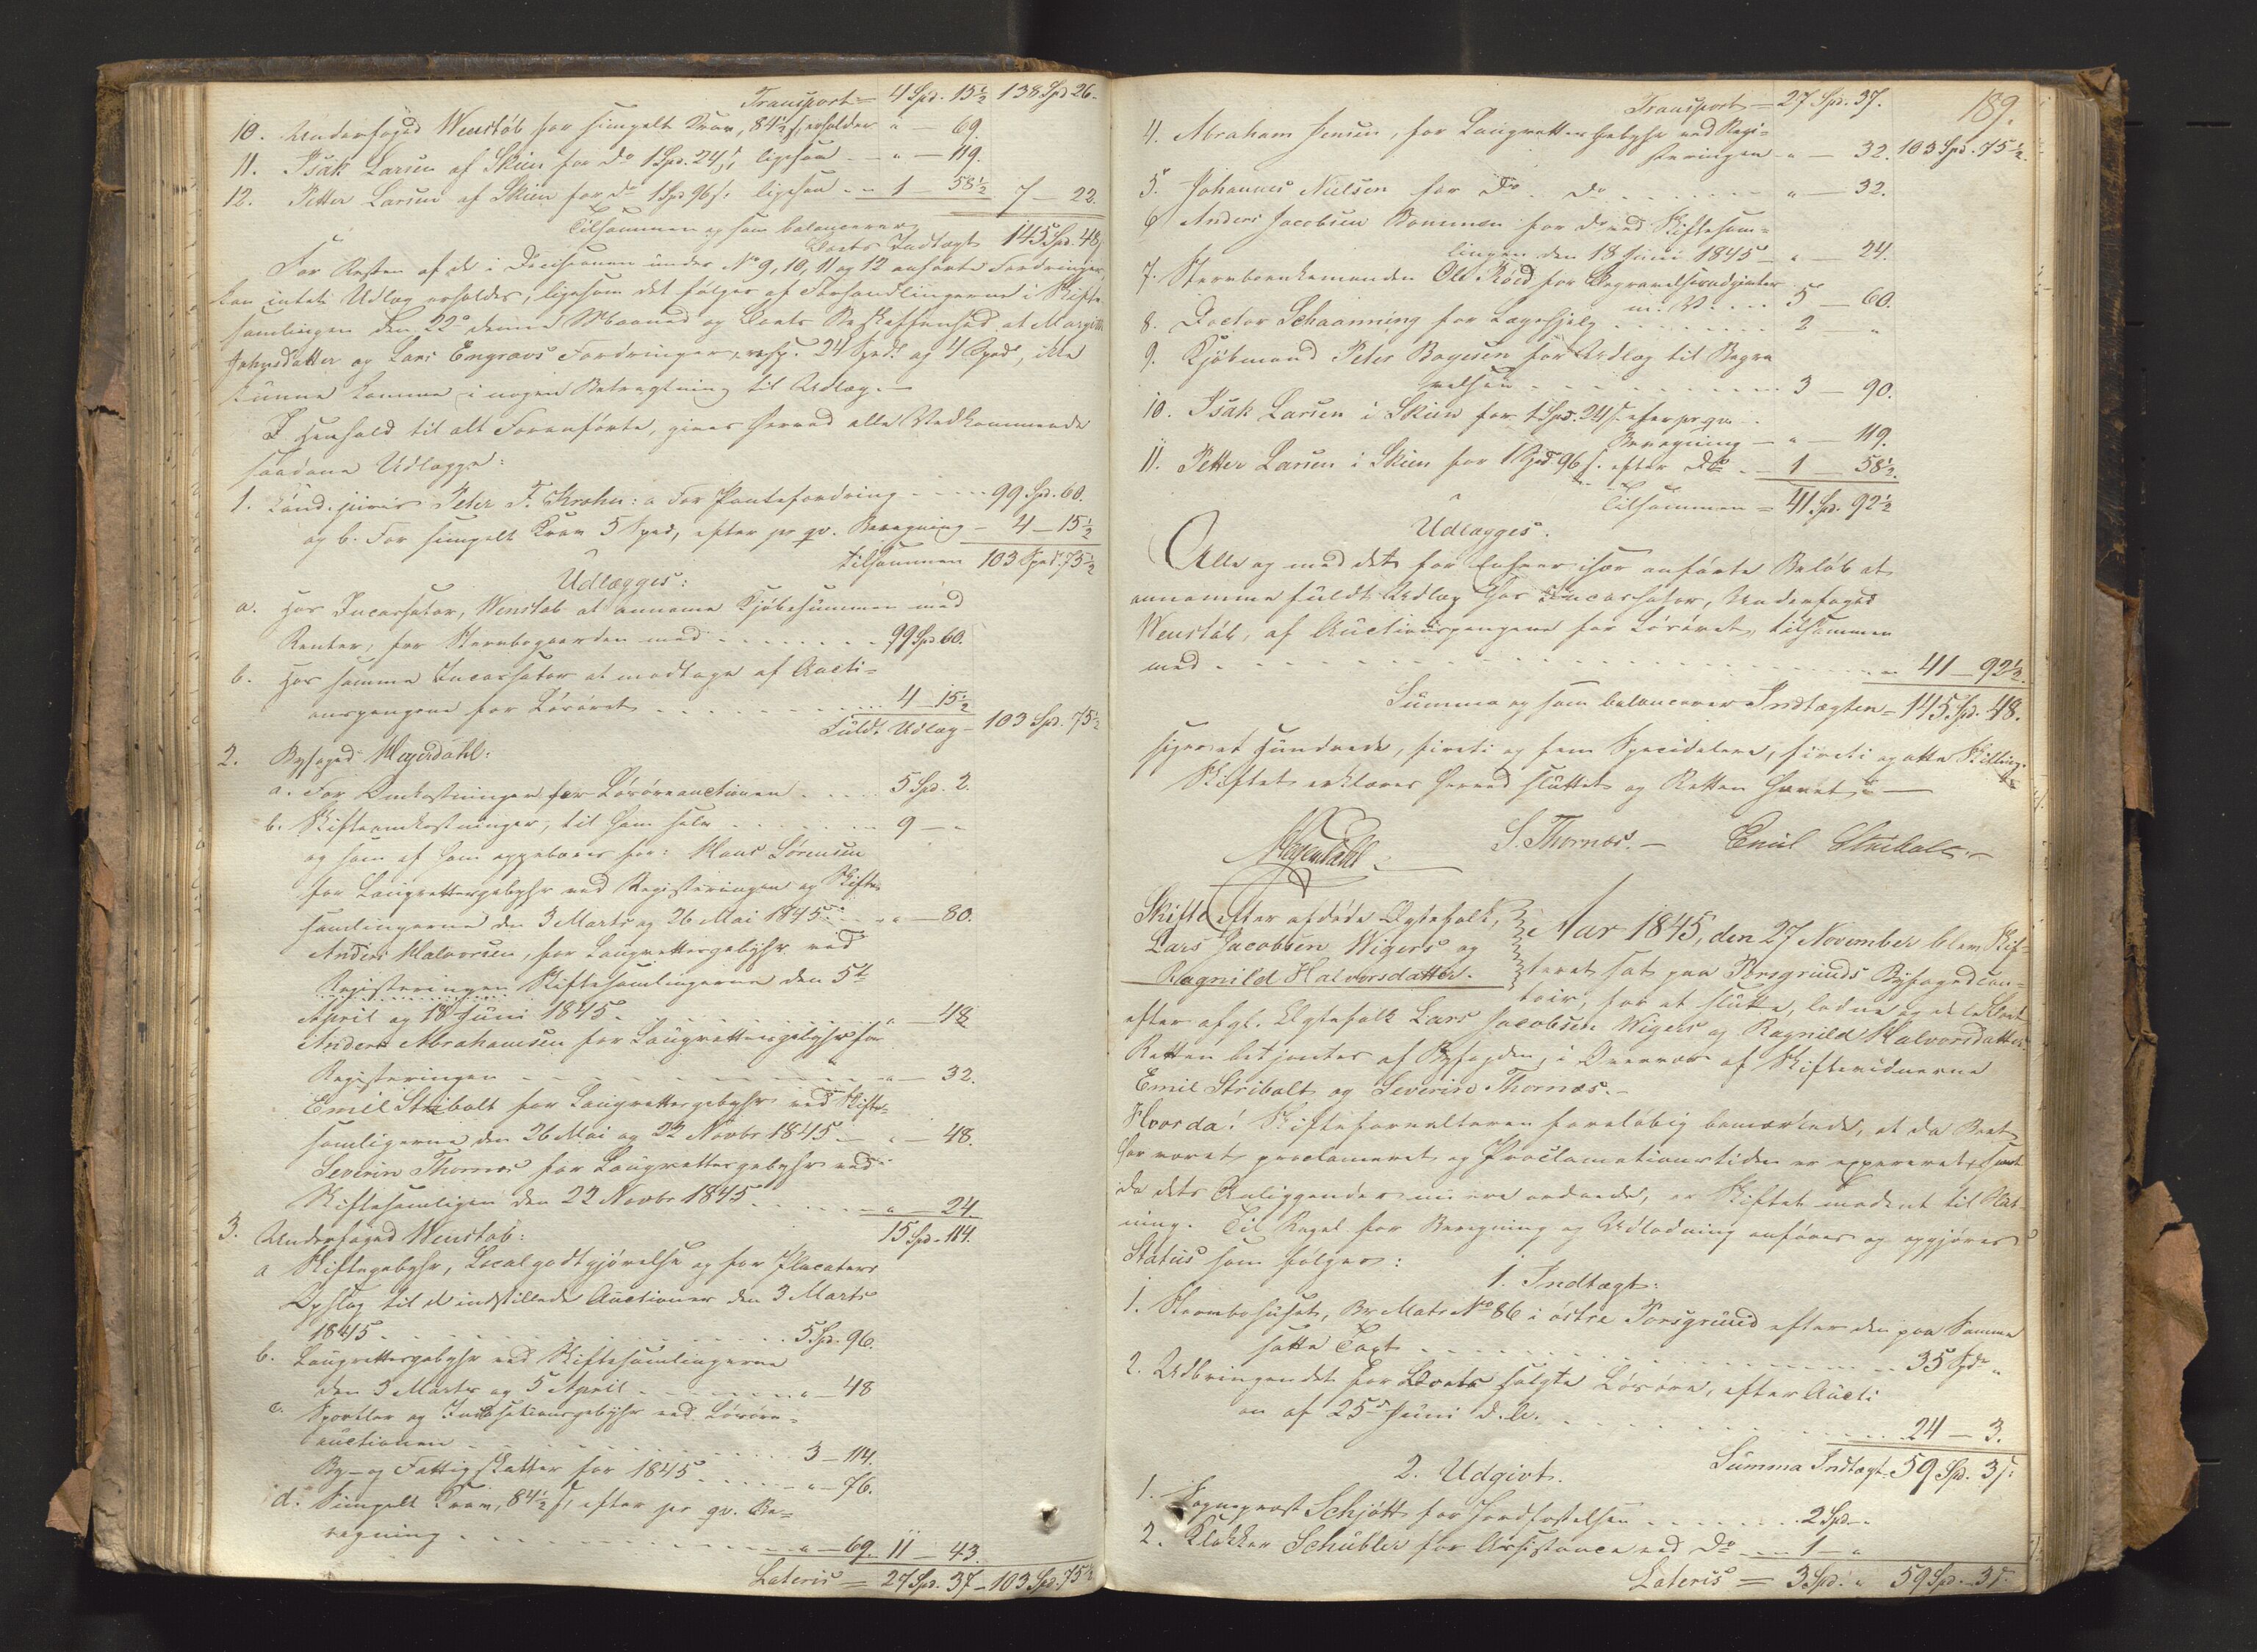 Transport = 4 Spd. 13½ 138 Spd 26.
10. Underfoged Wenstøb for simpelt Krav, 84½ ß, erholder " — 69.
11. Isak Larsen af Skien for do 1 Spd. 24 ß, ligesaa — " — 119.
12. Petter Larsen af Skien for do 1 Spd 96 ß: ligesaa — 1 — 58½ 7 — 22.
Tilsammen og som balancerer
Boets Indtægt 145 Spd. 48 ß
For Resten af de i Decisionen under No 9, 10, 11 og 12 anførte Fordringer,
kan intet Udlæg erholdes, ligesom det følger af Forhandlingerne i Skifte-
samlingen den 22de denne Maaned og Boets Beskaffenhed at Margith
Johnsdatter og Lars Engravs Fordringer, resp. 24 Spd. og 4 Spd, ikke
kunne komme i nogen Betragtning til Udlæg. —
I Henhold til alt Foranførte, gives herved alle Vedkommende
saadanne Udlægge:
1. Cand. juris Peter F. Krohn: a For Pantefordring — 99 Spd. 60.
og b. For simpelt Krav 5 Spd, efter pr qv. Beregning — 4 — 15½
tilsammen 103 Spd. 75½
Udlægges:
a. Hos Incassator, Wenstøb at annamme Kjøbesummen med
Renter, for Sterbogaarden med . . . . 99 Spd 60.
b. Hos samme Incassator at modtage af Aucti-
onspengene for Løsøret . . . . 4 — 15½
Fuldt Udlæg — 103 Spd. 75½
2. Byfoged Heyerdahl:
a. For Omkostninger for Løsøreauctionen . . . 5 Spd. 2.
b. Skifteomkostninger, til ham selv . . . . 9 — "
og som af ham oppebæres for: Hans Sørensen
for Laugrettesgebyhr ved Registeringen og Skifte-
samlingerne den 3 Marts og 26 Mai 1845. — " — 80.
Anders Halvorsen, for Laugrettesgebyhr ved
Registeringen Skiftesamlingerne den 5te
April og 18 Juni 1845. . . . " — 48
Anders Abrahamsen for Laugrettesgebyhr for
Registeringen . . . . " — 32.
Emil Stribolt for Laugrettesgebyhr ved Skifte-
samligerne den 26 Mai og 22 Novbr 1845 — " — 48.
Severin Thornæs for Laugrettesgebyhr ved
Skiftesamligen den 22 Novbr 1845 . . . . " — 24.
15 Spd. 114.
3. Underfoged Wenstøb:
a Skiftegebyhr, Localgodtgjørelse og for Placaters
Opslag til de indstillede Auctioner den 3 Marts
1845 . . . . 5 Spd. 96.
b. Laugrettesgebyhr ved Skiftesamlingerne
den 3 Marts og 5 April . . . . " — 48
c. Sportler og Incassationsgebyhr ved Løsøre-
auctionen . . . . 3 — 114.
By- og Fattigskatter for 1845 . . . . " — 76.
d. Simpelt Krav, 84½ ß, efter pr qv. Be-
regning . . . . " — 69. 11 — 43.
Lateris = 27 Spd. 37 — 103 Spd. 75½
189.
Transport — 27 Spd. 37.
4. Abraham Jensen, for Laugrettesgebyhr ved Regi-
steringen " — 32. 103 Spd. 75½.
5. Johannes Nielsen for Do. Do . . . . " — 32.
6 Anders Jacobsen Rommen for Do ved Skiftesam-
lingen den 18 Juni 1845 — " — 24.
7. Stervbomkemanden Ole Röed for Begravelsesudgivter
m. V. . . . 5 — 60.
8. Doctor Schaanning for Lægehjelp . . . . 2 — "
9. Kjøbmand Peter Boyesen for Udlæg til Begra
velsen . . . . 3 — 90.
10. Isak Larsen i Skien for 1 Spd. 24 ß. efter pr qv.
Beregning — " — 119.
11. Petter Larsen i Skien for 1 Spd 96 ß. efter Do . — 1 — 58½.
Tilsammen = 41 Spd. 92½
Udlægges.
Alle og med det for Enhver især anførte Beløb at
annamme fuldt Udlæg hos Incassator, Underfoged
Wenstøb, af Auctionspengene for Løsøret, tilsammen
med . . . . 41 — 92½.
Summa og som balancerer Indtægten — 145 Spd. 48.
siger et Hundrede, fireti og fem Speciedalere, fireti og otte Skilling.
Skiftet erklæres herved sluttet og Retten hævet. —
Heyerdahl. S. Thornæs. — Emil Stribolt. —
Skifte efter afdøde Ægtefolk,
Lars Jacobsen Wigers og
Ragnild Halvorsdatter.
Aar 1845, den 27 November blev Skif-
teret sat paa Porsgrunds Byfogedcon-
toir, for at slutte, lodne og dele Boet
efter afgl. Ægtefolk Lars Jacobsen Wigers og Ragnild Halvorsdatter.
Retten betjentes af Byfogden, i Overvær af Skiftevidnerne
Emil Stribolt og Severin Thornæs. —
Hvorda! Skifteforvalteren foreløbig bemærkede, at da Boet
har været proclameret og Proclamationstiden er exspireret, samt
da dets Anliggender nu ere ordnede, er Skiftet modent til Slut-
ning. Til Regel for Beregning og Udlodning anføres og opgjøres
Status som følger:
1. Indtægt:
1. Stervbohuset, Br Matr No 86 i østre Porsgrund efter den paa Samme
satte Taxt . . . . 35 Spdr "
2. Udbringendet for Boets solgte Løsøre, efter Aucti
on af 25de Juni d. A. . . . . 24 — 3.
Summa Indtægt 59 Spd. 3 ß:
2. Udgivt.
1. Sogneprest Schjøtt for Jordfæstelsen . . . . 2 Spd. "
2. Klokker Schübler for Assistance ved Do . — 1 — "
Lateris = 3 Spd. " 59 Spd. — 3 ß.